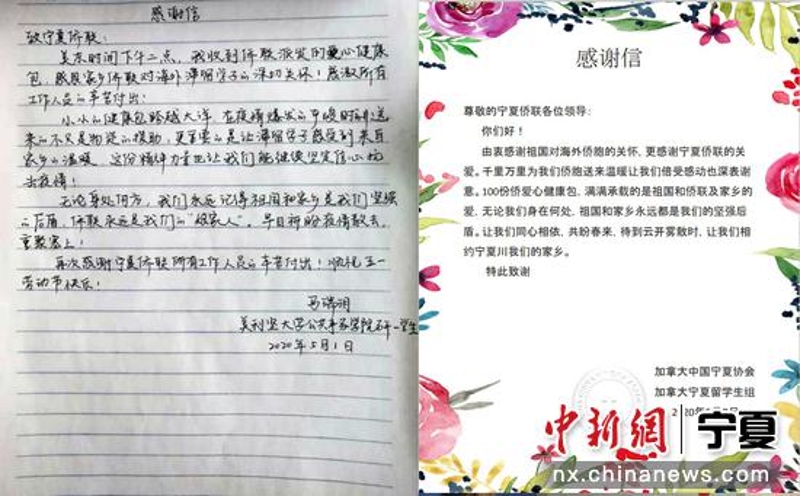 感谢信
致宁夏侨联:
美东时间下午二点,我收到侨联派发的爱心健康
包,感恩家乡侨联对海外滞留学子的深切关怀!感激所有
工作人员的辛苦付出!
小小的健康包跨越大洋,在疫情爆发的
来的不只是物资的援助,更重要的是让滞留学子感受到来自
家乡的温暖,这份精神力量也让我们能继续坚定信心抗
击疫情!
无论身处何方,我们永远记得祖国和家乡是我们坚强
的后盾,侨联永远是我们的“娘家人”。早日祈盼疫情散去,
重聚塞上!
再次感谢宁夏侨联所有工作人员的辛苦付出!顺祝五一
劳动节快乐!
马瑞
美利坚大学公共事务学院研一学生
2020年5月1日
感谢信
尊敬的宁夏侨联各位领导:
你们好!
由衷感谢祖国对海外侨胞的关怀,更感谢宁夏侨联的关
爱。千里万里为我们侨胞送来温暖让我们倍受感动也深表谢
意。100份侨爱心健康包,满满承载的是祖国和侨联及家乡的
爱,无论我们身在何处,祖国和家乡永远都是我们的坚强后
盾。让我们同心相依、共盼春来,待到云开雾散时,让我们相
约宁夏川我们的家乡。
特此致谢
加拿大中国宁夏协会
加拿大宁夏留学生组
中新網 宁夏
nx.chinanews.com